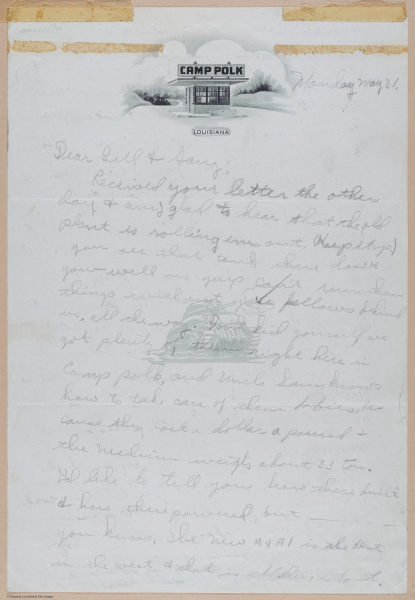 CAMP POLK
LOUISIANA
Monday May 31.
Dear Bill & Gang;
Received your letter the other
day & am glad to hear that the old
plant is rolling em out (Keep it up)
you see that tank there down
well us guys can't run them
things without you fellows behind
us. All the kid yourself we
got plenty of them right here in
Camp Polk, and Uncle Sam knows
how to take care of them babies be-
cause they cost a dollar a pound &
the medium weighs about 33 ton.
I'd like to tell you how there built
& how there powered, but
you know. The new M4A1 is the best
in the west & that is all there is to it.